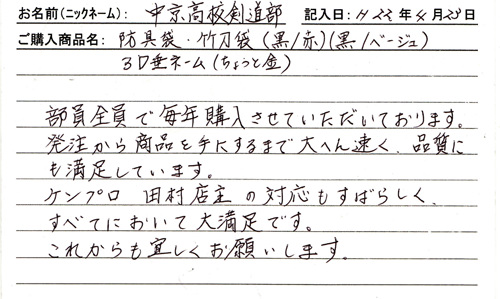 お名前(ニックネーム): 中京高校剣道部 記入日: H22年4月23日
ご購入商品名: 防具袋・竹刀袋(黒/赤)(黒/ベージュ)
3D垂ネーム(ちょっと金)
部員全員で毎年購入させていただいております。
発注から商品を手にするまで大へん速く、品質に
も満足しています。
ケンプロ 田村店主の対応もすばらしく、
すべてにおいて大満足です。
これからも宜しくお願いします。